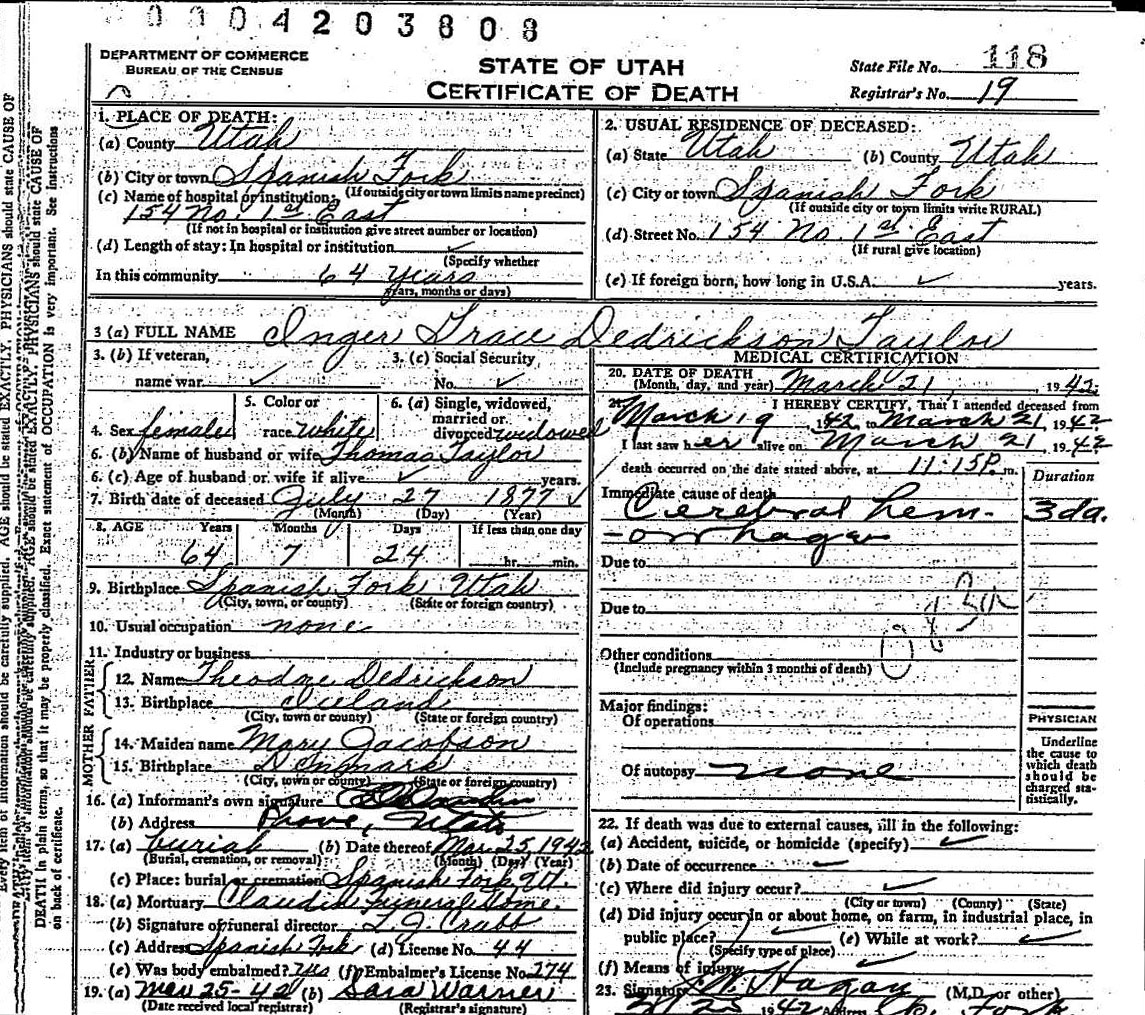 0004203808
DEPARTMENT OF COMMERCE
BUREAU OF THE CENSUS
STATE OF UTAH
CERTIFICATE OF DEATH
State File No. 118
Registrar's No. 19
1. PLACE OF DEATH:
(a) County Utah
(b) City or town Spanish Fork
(If outside city or town limits name precinct)
(c) Name of hospital or institution:
154 No. 1st East
(If not in hospital or institution give street number or location)
(d) Length of stay: In hospital or institution ✓
(Specify whether
In this community 64 years
years, months or days)
2. USUAL RESIDENCE OF DECEASED:
(a) State Utah (b) County Utah
(c) City or town Spanish Fork
(If outside city or town limits write RURAL)
(d) Street No. 154 No. 1st East
(If rural give location)
(e) If foreign born, how long in U.S.A. ✓ years.
3 (a) FULL NAME Inger Grace Dedrickson Taylor
3. (b) If veteran,
name war ✓
3. (c) Social Security
No. ✓
4. Sex female
5. Color or
race white
6. (a) Single, widowed,
married or
divorced widowed
6. (b) Name of husband or wife Thomas Taylor
6. (c) Age of husband or wife if alive ✓ years.
7. Birth date of deceased July 27 1877 ✓
(Month) (Day) (Year)
8. AGE Years Months Days If less than one day
64 7 24 hr. min.
9. Birthplace Spanish Fork Utah
(City, town, or county) (State or foreign country)
10. Usual occupation none
11. Industry or business
FATHER
12. Name Theodore Dedrickson
13. Birthplace Iceland
(City, town or county) (State or foreign country)
MOTHER
14. Maiden name Mary Jacobson
15. Birthplace Denmark
(City, town or county) (State or foreign country)
16. (a) Informant's own signature
(b) Address Provo, Utah
17. (a) burial (b) Date thereof Mar. 25, 1942
(Burial, cremation, or removal) (Month) (Day) (Year)
(c) Place: burial or cremation Spanish Fork Ut.
18. (a) Mortuary Claudin Funeral Home.
(b) Signature of funeral director L. J. Crabb
(c) Address Spanish Fork (d) License No. 44
(e) Was body embalmed? Yes (f) Embalmer's License No. 274
19. (a) Mar 25-42 (b) Sara Warner
(Date received local registrar) (Registrar's signature)
MEDICAL CERTIFICATION
20. DATE OF DEATH
(Month, day, and year) March 21, 1942
21. I HEREBY CERTIFY, That I attended deceased from
March 19, 1942 to March 21, 1942
I last saw her alive on March 21, 1942
death occurred on the date stated above, at 11:15 P. m.
Duration
Immediate cause of death
Cerebral hem- 3 da.
-orrhage
Due to
Due to
Other conditions
(Include pregnancy within 3 months of death)
Major findings:
Of operations
Of autopsy none
PHYSICIAN
Underline
the cause to
which death
should be
charged sta-
tistically.
22. If death was due to external causes, fill in the following:
(a) Accident, suicide, or homicide (specify) ✓
(b) Date of occurrence ✓
(c) Where did injury occur? ✓
(City or town) (County) (State)
(d) Did injury occur in or about home, on farm, in industrial place, in
public place? ✓ (e) While at work? ✓
(Specify type of place)
(f) Means of injury ✓
23. Signature Hagan (M.D. or other)
25 1942 Address Sp. Fork
Every item of information should be carefully supplied. AGE should be stated EXACTLY. PHYSICIANS should state CAUSE OF
DEATH in plain terms, so that it may be properly classified. Exact statement of OCCUPATION is very important. See instructions
on back of certificate.